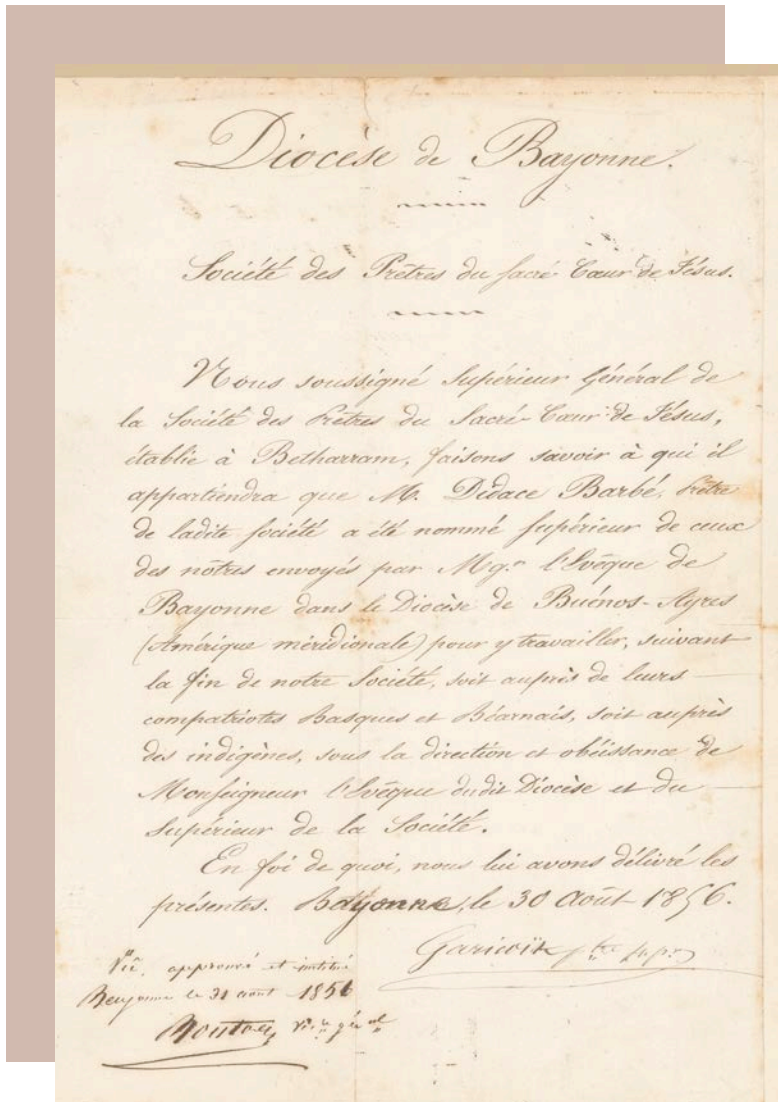 Diocèse de Bayonne.
Société des Prêtres du Sacré-Cœur de Jésus.
Nous soussigné Supérieur Général de
la Société des Prêtres du Sacré-Cœur de Jésus,
établie à Betharram, faisons savoir à qui il
appartiendra que M. Didace Barbé, Prêtre
de ladite Société a été nommé Supérieur de ceux
des nôtres envoyés par Mgr. l'Evêque de
Bayonne dans le Diocèse de Buénos-Ayres
(Amérique méridionale) pour y travailler, suivant
la fin de notre Société, soit auprès de leurs
compatriotes Basques et Béarnais, soit auprès
des indigènes, sous la direction et obéissance de
Monseigneur l'Evêque dudit Diocèse et du
Supérieur de la Société.
En foi de quoi, nous lui avons délivré les
présentes. Bayonne, le 30 Août 1856.
Garicoïts ptre supr
Vu, approuvé et institué
Bayonne le 31 août 1856
vic. gén.al